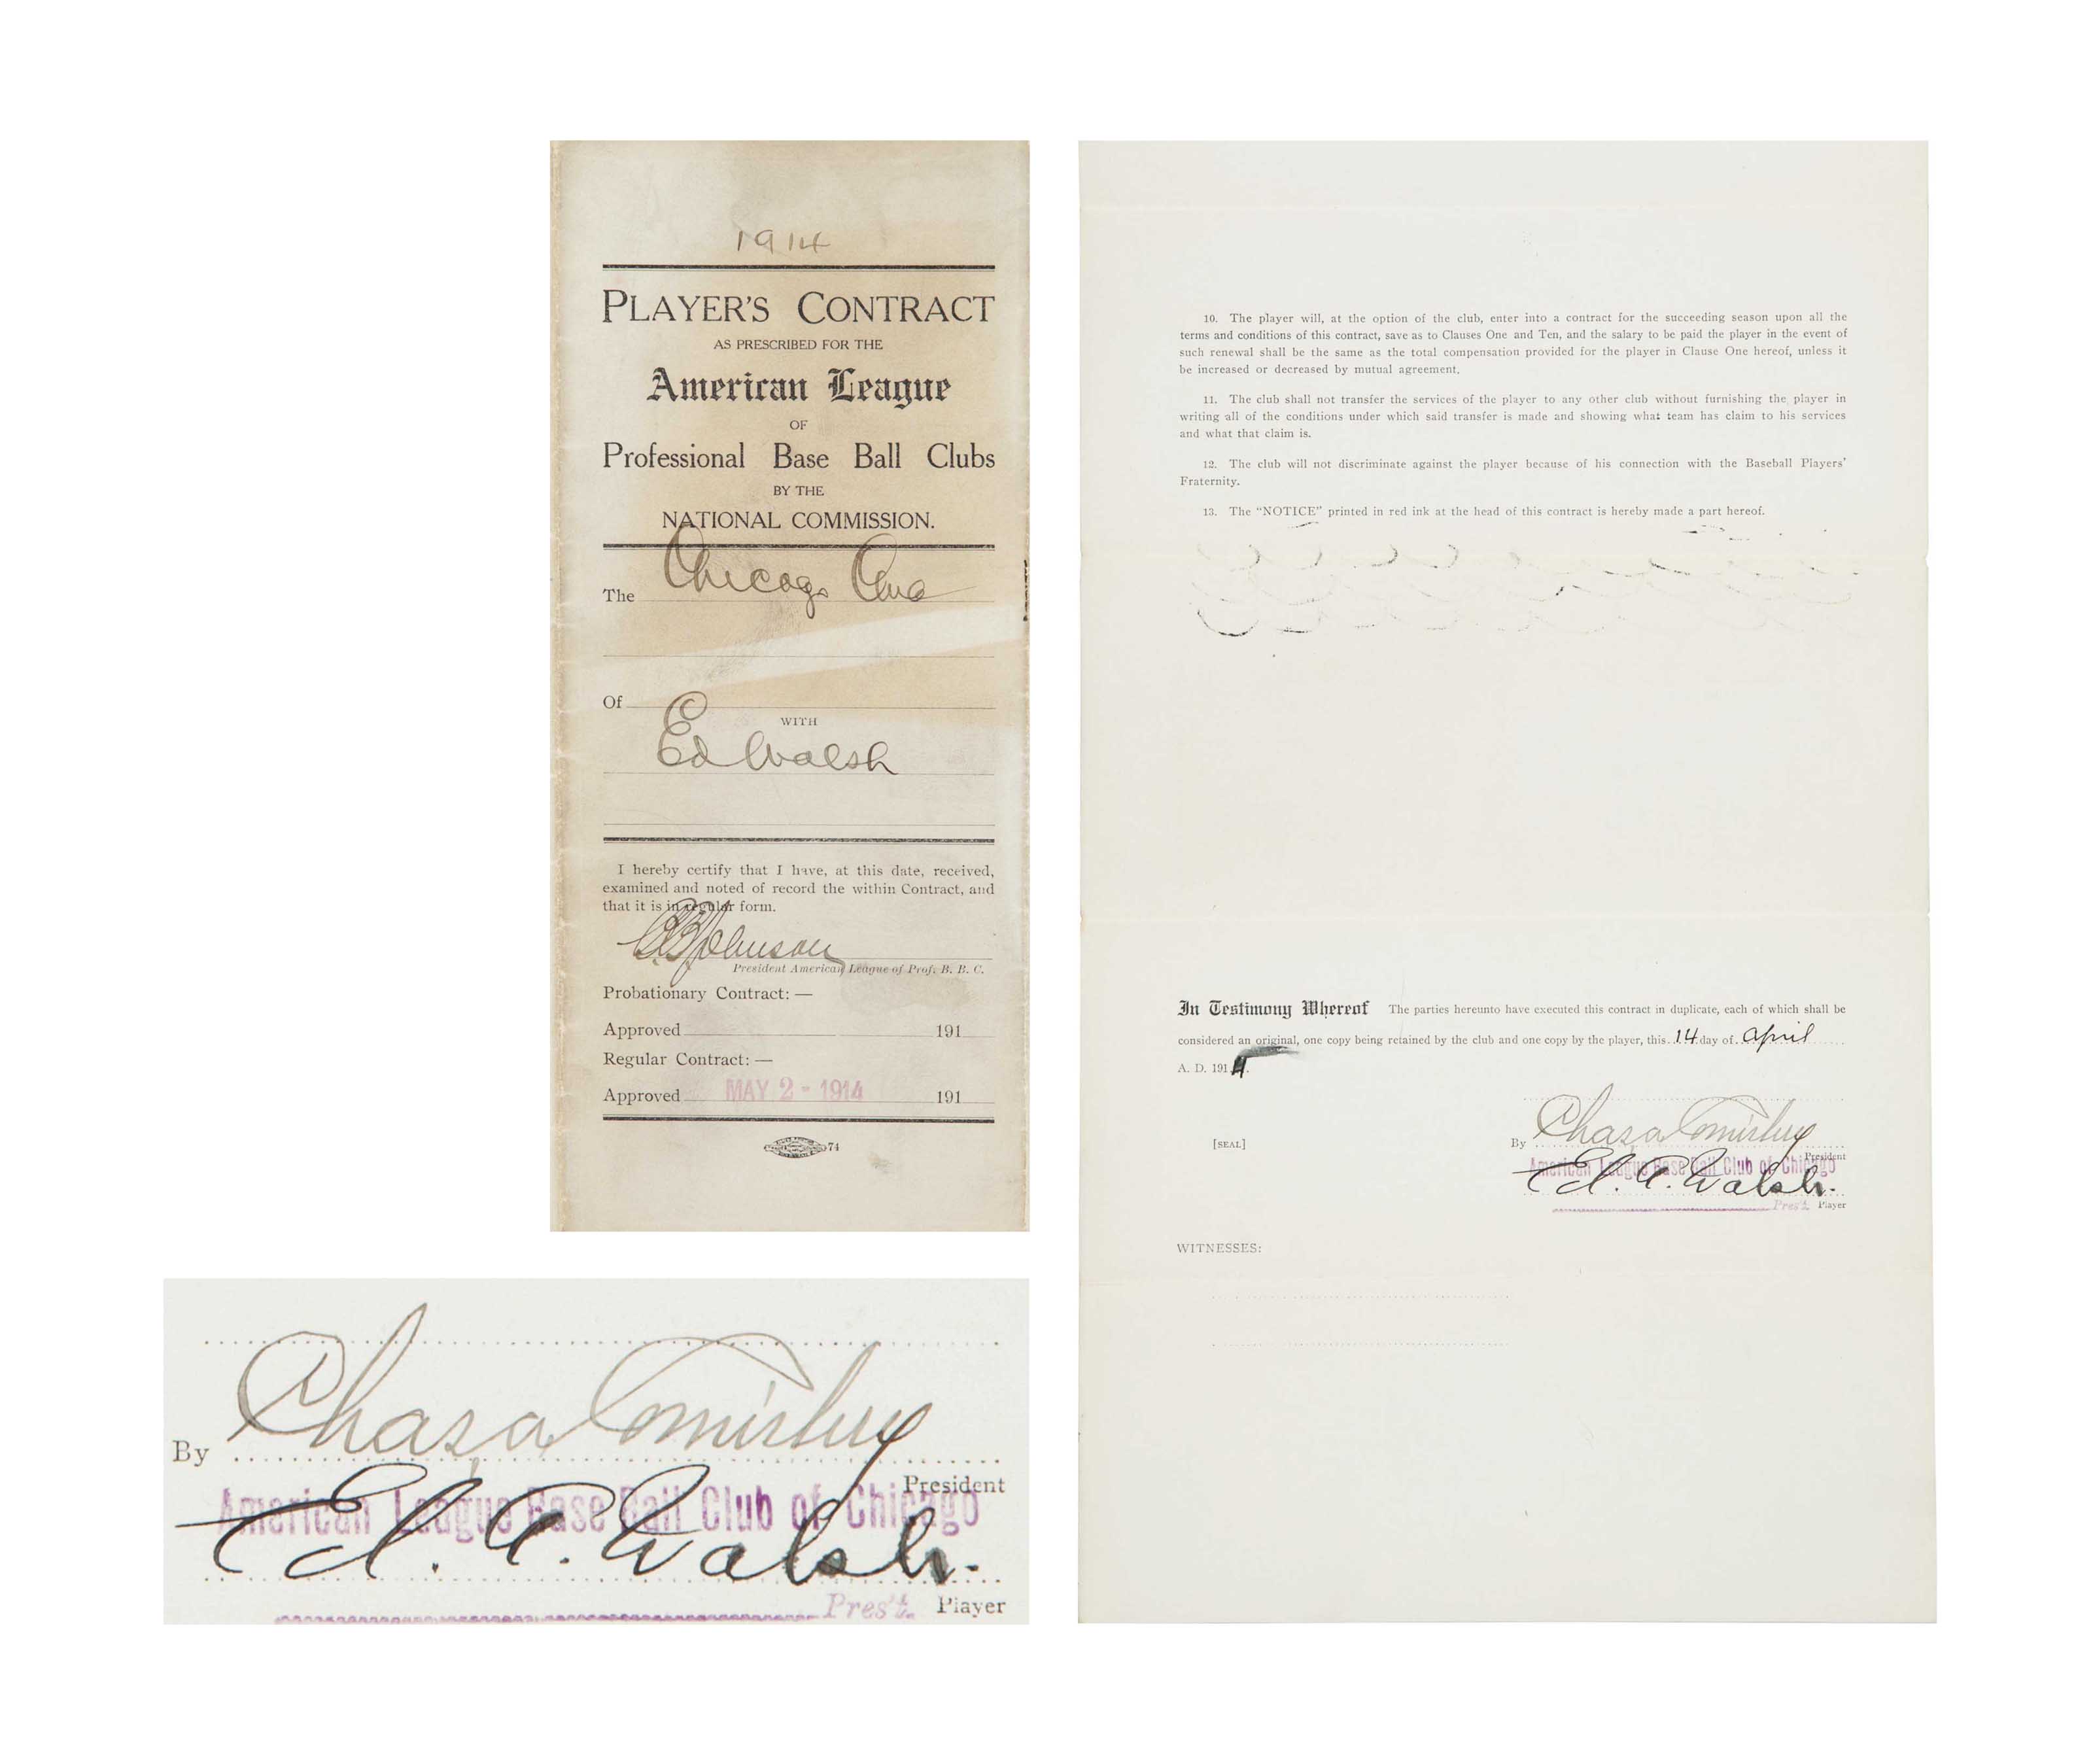 1914
PLAYER'S CONTRACT
AS PRESCRIBED FOR THE
American League
OF
Professional Base Ball Clubs
BY THE
NATIONAL COMMISSION.
The Chicago
Of
WITH
Ed Walsh
I hereby certify that I have, at this date, received,
examined and noted of record the within Contract, and
that it is in regular form.
B B Johnson
President American League of Prof. B. B. C.
Probationary Contract: —
Approved 191
Regular Contract: —
Approved MAY 2 - 1914 191
74
10. The player will, at the option of the club, enter into a contract for the succeeding season upon all the
terms and conditions of this contract, save as to Clauses One and Ten, and the salary to be paid the player in the event of
such renewal shall be the same as the total compensation provided for the player in Clause One hereof, unless it
be increased or decreased by mutual agreement.
11. The club shall not transfer the services of the player to any other club without furnishing the player in
writing all of the conditions under which said transfer is made and showing what team has claim to his services
and what that claim is.
12. The club will not discriminate against the player because of his connection with the Baseball Players'
Fraternity.
13. The "NOTICE" printed in red ink at the head of this contract is hereby made a part hereof.
In Testimony Whereof The parties hereunto have executed this contract in duplicate, each of which shall be
considered an original, one copy being retained by the club and one copy by the player, this 14 day of April
A. D. 1914.
[SEAL]
By Chas a Comiskey
President
American League Base Ball Club of Chicago
Ed. A. Walsh.
Pres't. Player
WITNESSES:
By Chas a Comiskey
President
American League Base Ball Club of Chicago
Ed. A. Walsh.
Pres't. Player